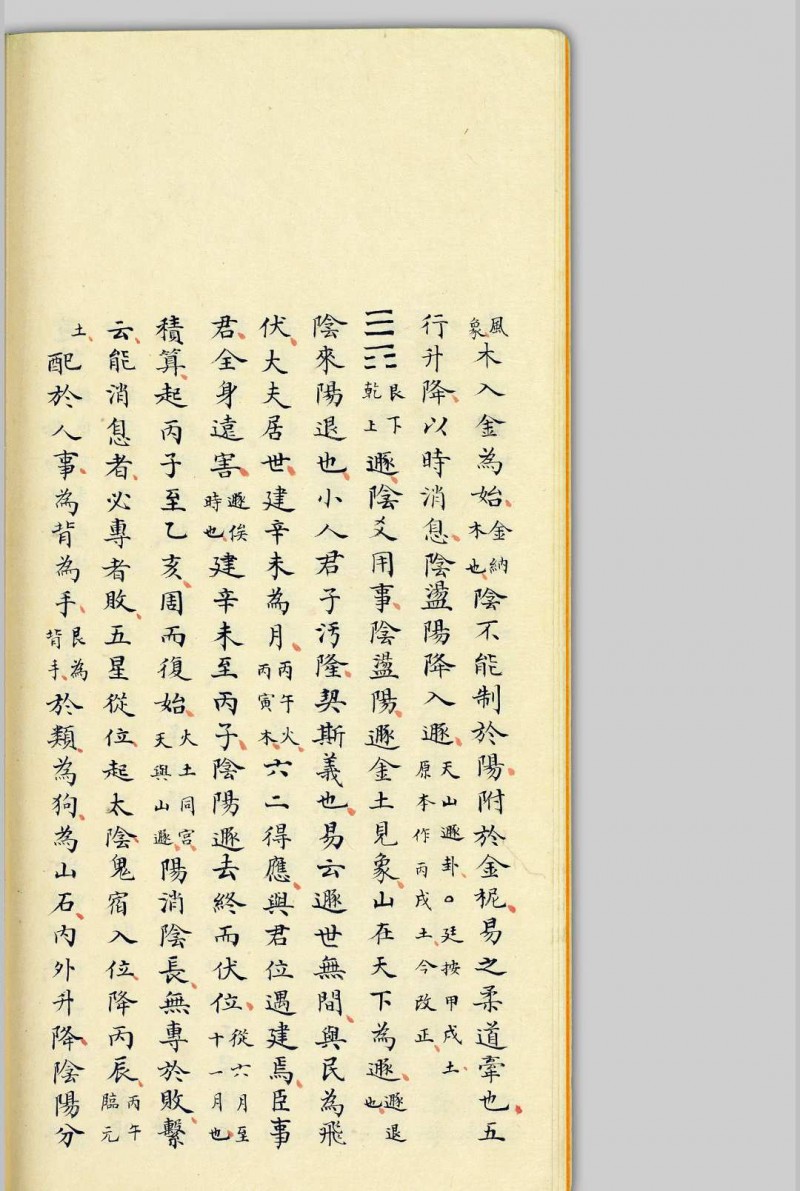 風象木入金為始金納木也陰不能制於陽附於金柅易之柔道牽也五
行升降以時消息陰盪陽降入遯天山遯卦○廷按甲戌土原本作丙戌土今改正
䷠艮下乾上遯陰爻用事陰盪陽遯金土見象山在天下為遯遯退也
陰來陽退也小人君子汚隆契斯義也易云遯世無悶與民為飛
伏大夫居世建辛未為月丙午火丙寅木六二得應與君位遇建焉臣事
君全身遠害遯俟時也建辛未至丙子陰陽遯去終而伏位從六月至十一月也
積算起丙子至乙亥周而復始火土同宮天與山遯陽消陰長無專於敗繫
云能消息者必專者敗五星從位起太陰鬼宿入位降丙辰丙午臨元
土配於人事為背為手艮為背手於類為狗為山石內外升降陰陽分